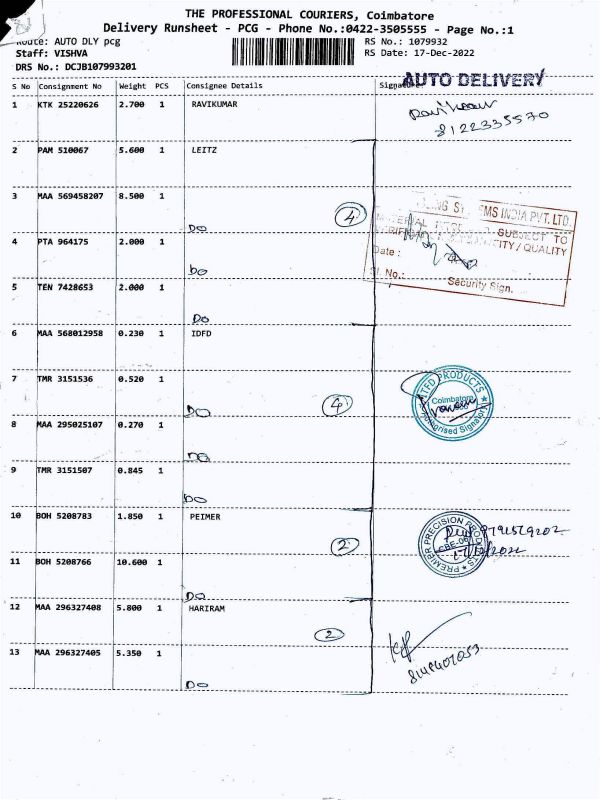 THE PROFESSIONAL COURIERS, Coimbatore
Delivery Runsheet - PCG - Phone No.:0422-3505555 - Page No.:1
Route: AUTO DLY pcg
RS No.: 1079932
Staff: VISHVA
RS Date: 17-Dec-2022
DRS No.: DCJB107993201
AUTO DELIVERY
S No Consignment No Weight PCS Consignee Details Signature
1 KTK 25220626 2.700 1 RAVIKUMAR
Ravikumar
8122335570
2 PAM 510067 5.600 1 LEITZ
3 MAA 569458207 8.500 1
DO
4
SYSTEMS INDIA PVT. LTD.
MATERIAL SUBJECT TO
QUALITY
Date :
Sl. No.: Security Sign.
4 PTA 964175 2.000 1
DO
5 TEN 7428653 2.000 1
DO
6 MAA 568012958 0.230 1 IDFD
7 TMR 3151536 0.520 1
DO
4
PRODUCTS
Coimbatore
Authorised Signatory
8 MAA 295025107 0.270 1
DO
9 TMR 3151507 0.845 1
DO
10 BOH 5208783 1.850 1 PEIMER
2
PREMIER PRECISION PRODUCTS
CBE-06
9791579202
17/12/2022
11 BOH 5208766 10.600 1
DO
12 MAA 296327408 5.800 1 HARIRAM
2
13 MAA 296327405 5.350 1
DO